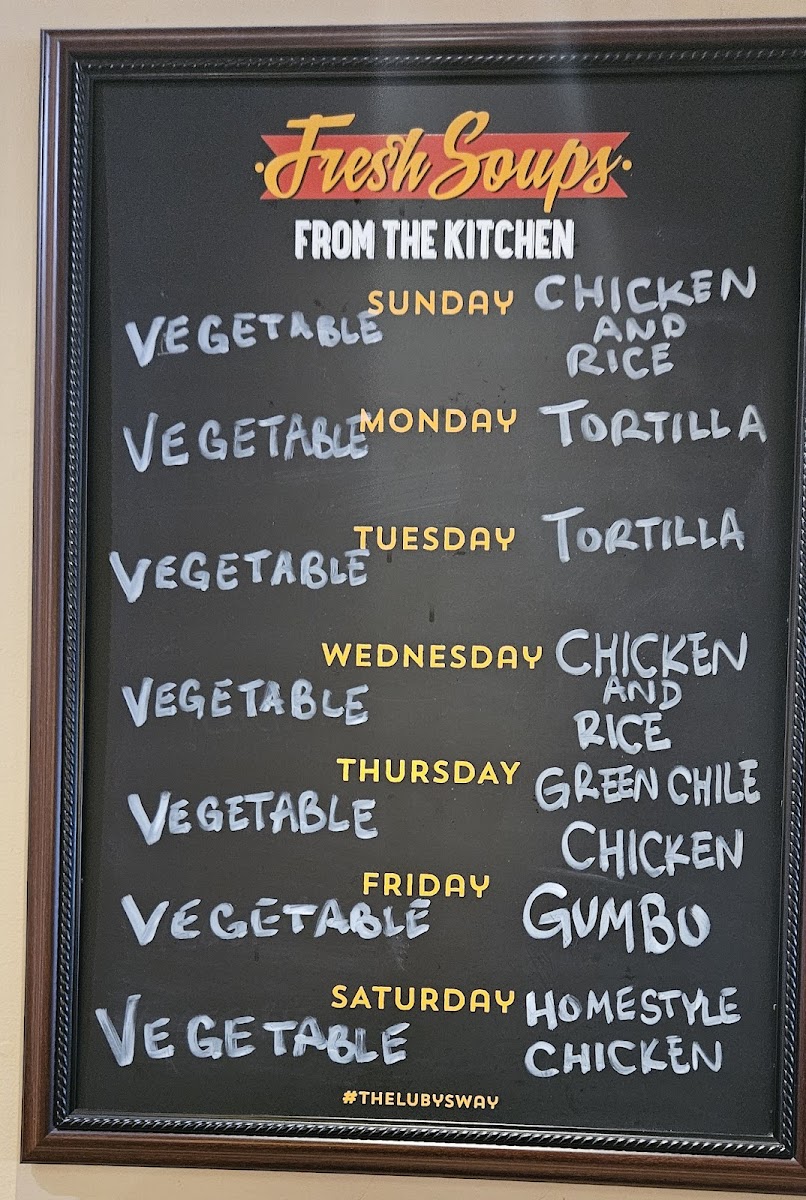 Fresh Soups
FROM THE KITCHEN
SUNDAY
VEGETABLE
CHICKEN
AND
RICE
MONDAY
VEGETABLE
TORTILLA
TUESDAY
VEGETABLE
TORTILLA
WEDNESDAY
VEGETABLE
CHICKEN
AND
RICE
THURSDAY
VEGETABLE
GREEN CHILE
CHICKEN
FRIDAY
VEGETABLE
GUMBO
SATURDAY
VEGETABLE
HOMESTYLE
CHICKEN
#THELUBYSWAY